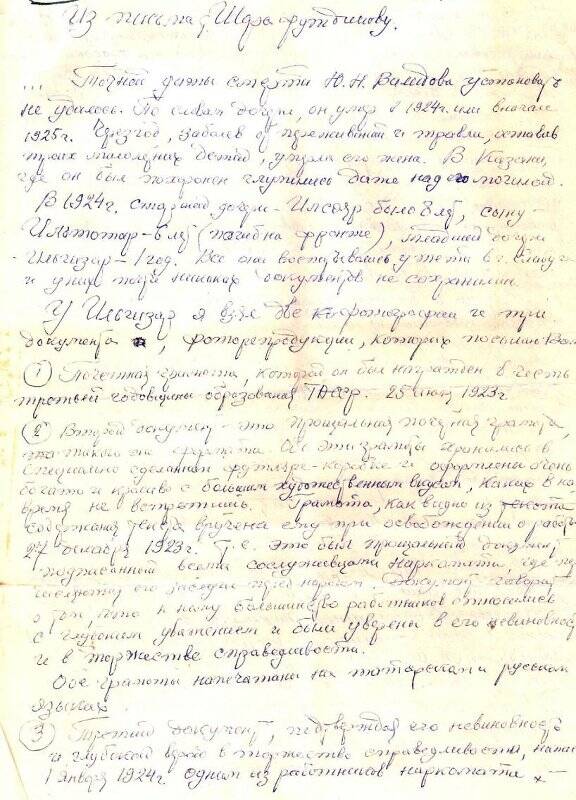 Из письма Ш. Шарафутдинову.
... Точной даты смерти Ю.Н. Валидова установить
не удалось. По словам дочери, он умер в 1924г. или в начале
1925г. Через год, заболев от переживаний и травли, оставив
троих малолетних детей, умерла его жена. В Казани,
где он был похоронен глумились даже над его могилой.
В 1924г. старшей дочери - Илсояр было 8 лет, сыну -
Ильтотар - 6 лет (погиб на фронте), младшей дочери
Ильгизар - 1 год. Все они воспитывались у тети в г.
и у них почти никаких документов не сохранилось.
У Ильгизар я взял две фотографии и три
документа, фоторепродукции, которых посылаю Вам
① Почетная грамота, которой он был награжден в честь
третьей годовщины образования ТАССР. 25 июня 1923г
② Второй документ - это прощальная почетная грамота,
такого же формата. Обе эти грамоты хранились в
специально сделанном футляре-коробке и оформлены очень
богато и красиво с большим художественным вкусом, каких в на
время не встретишь. Грамота, как видно из текста
содержания вручена ему при освобождении с работы
27 декабря 1923г. Т.е. это был прощальный документ,
подписанный всеми сослуживцами наркомата, где пе
числяют его заслуги перед народом. Документ говорит
о том, что к нему большинство работников относились
с глубоким уважением и были уверены в его невиновнос
и в торжестве справедливости.
Обе грамоты напечатаны на татарском и русском
языках.
③ Третий документ, подтверждая его невиновность
и глубокой верой в торжество справедливости, напис
1 января 1924г. одним из работников наркомата